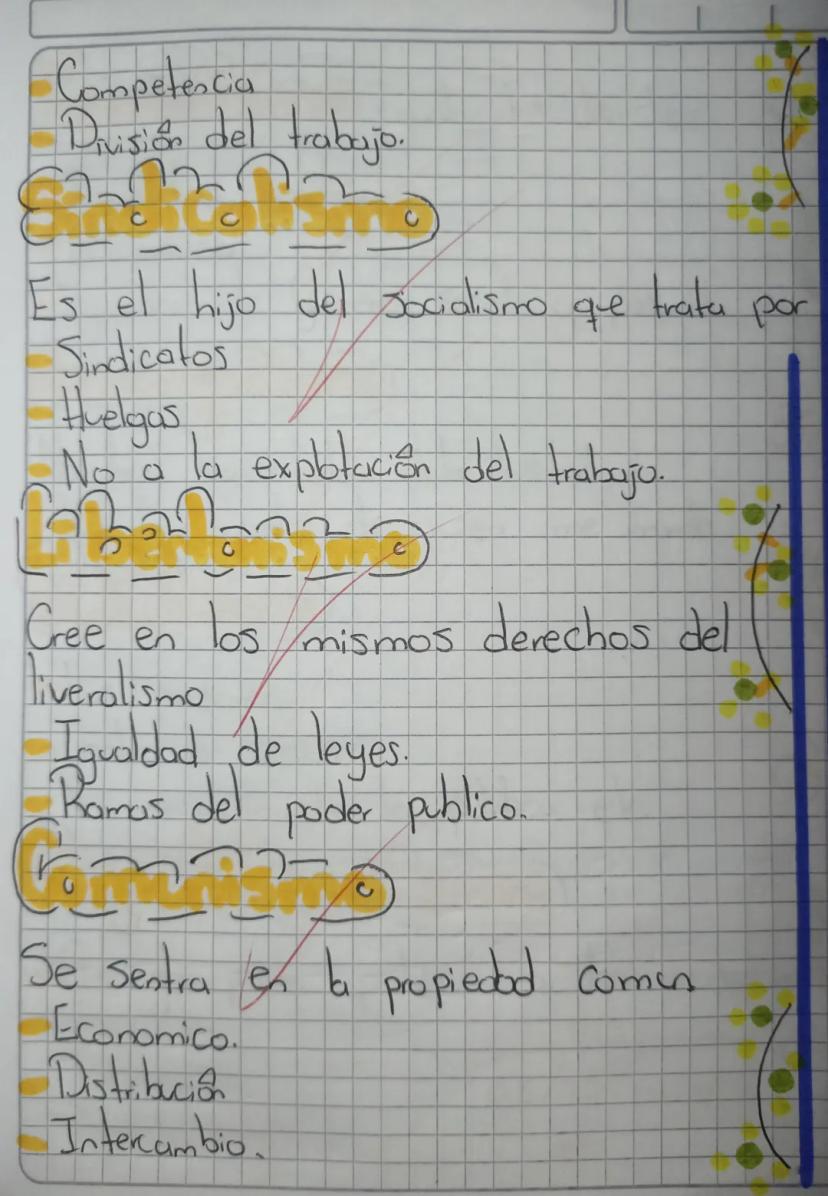 - Competencia
- División del trabajo.
Sindicalismo
Es el hijo del socialismo que trata por
- Sindicatos
- Huelgas
- No a la explotación del trabajo.
Libertarismo
Cree en los mismos derechos del
liveralismo
- Igualdad de leyes.
- Ramas del poder publico.
Comunismo
Se sentra en la propiedad comun
- Economico.
- Distribución
- Intercambio.